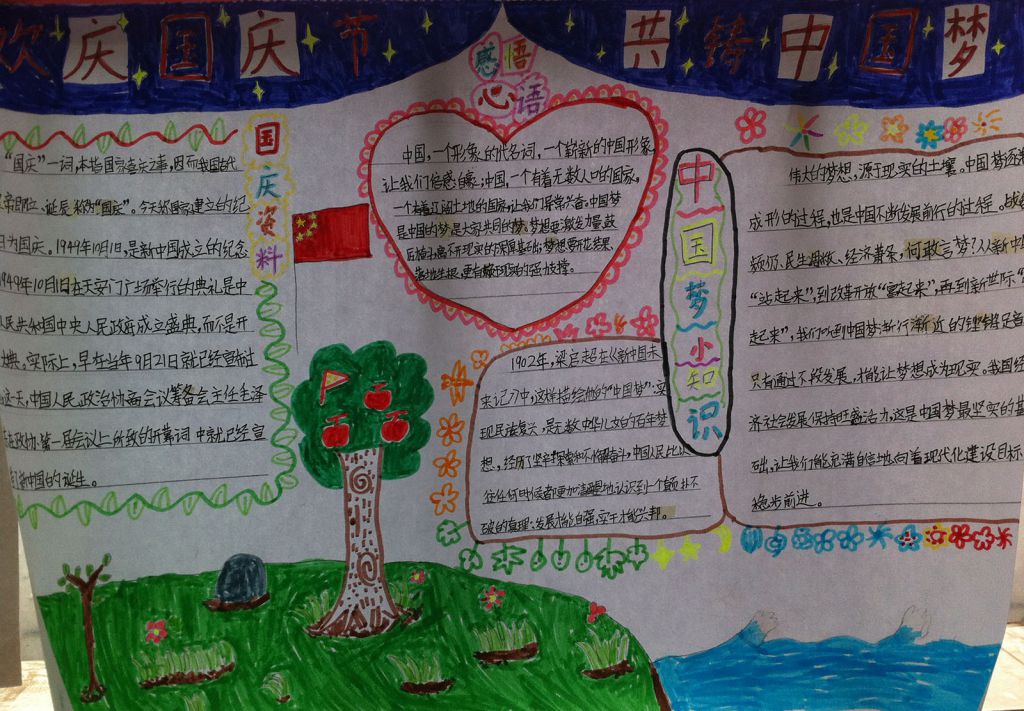 欢庆国庆节 共铸中国梦
国庆资料
"国庆"一词,本指国家喜庆之事,因而我国古代
帝即位、诞辰称为"国庆"。今天称国家建立的纪
日为国庆。1949年10月1日,是新中国成立的纪念
1949年10月1日在天安门广场举行的典礼是中
人民共和国中央人民政府成立盛典,而不是开
大典,实际上,早在当年9月21日就已经宣布过
这一天,中国人民政治协商会议筹备会主任毛泽
在政协第一届会议上所致的开幕词中就已经宣
了新中国的诞生。
感悟
心语
中国,一个形象的代名词,一个崭新的中国形象
让我们倍感自豪;中国,一个有着无数人口的国家,
一个有着辽阔土地的国家,让我们异常兴奋。中国梦
是中国的梦,是大家共同的梦。梦想再激发力量,鼓
离不开现实的深厚基础;梦想要开花结果、
落地生根,更有赖于现实的强力支撑。
中国梦小知识
1902年,梁启超在《新中国未
来记》中,这样描绘他的"中国梦"。实
现民族复兴,是无数中华儿女的百年梦
想,经历了坚辛探索和不懈奋斗,中国人民比以
往任何时候都更加清醒地认识到一个颠扑不
破的真理:发展才能自强,实干才能兴邦。
伟大的梦想,源于现实的土壤。中国梦逐渐
成形的过程,也是中国不断发展前行的过程。战
频仍、民生凋敝、经济萧条,何敢言梦?从新中
"站起来",到改革开放"富起来",再到新世际"
起来",我们听到中国梦渐行渐近的铿锵足音
只有通过不段发展,才能让梦想成为现实。我国经
济社会发展保持旺盛活力,这是中国梦最坚实的基
础,让我们能充满自信地向着现代化建设目标
稳步前进。